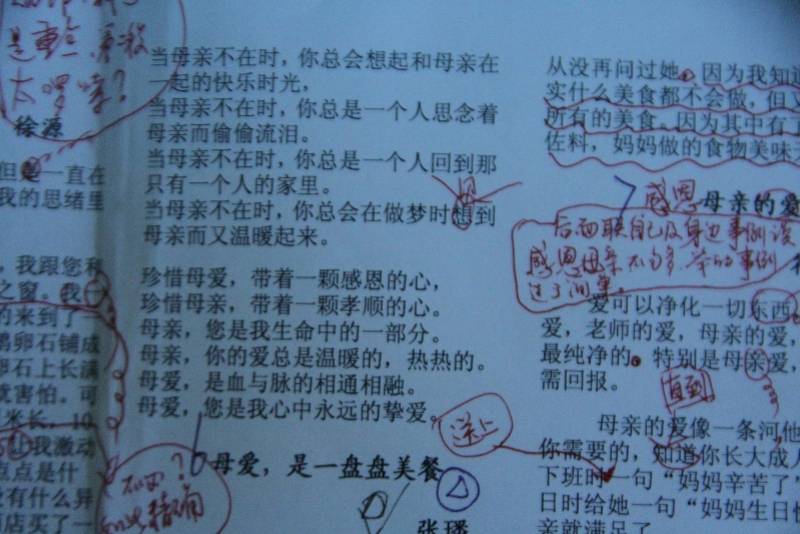 是重点，看我
太啰嗦？
徐源
一直在
我的思绪里
，我跟您和
之窗。我
的来到了
鹅卵石铺成
卵石上长满
就害怕。可
米长，10
让我激动
点点是什
没有什么异
店买了一
当母亲不在时，你总会想起和母亲在
一起的快乐时光，
当母亲不在时，你总是一个人思念着
母亲而偷偷流泪。
当母亲不在时，你总是一个人回到那
只有一个人的家里。
当母亲不在时，你总会在做梦时想到
母亲而又温暖起来。
珍惜母爱，带着一颗感恩的心，
珍惜母亲，带着一颗孝顺的心。
母亲，您是我生命中的一部分。
母亲，你的爱总是温暖的，热热的。
母爱，是血与脉的相通相融。
母爱，您是我心中永远的挚爱。
送上
6母爱，是一盘盘美餐
张璠
从没再问过她。因为我知道
实什么美食都不会做，但又
所有的美食。因为其中有了
佐料，妈妈做的食物美味无
感恩母亲的爱
后面联自己及身边事例谈
感恩母亲不够多，举的事例
过于简单。
爱可以净化一切东西
爱，老师的爱，母亲的爱，
最纯净的。特别是母亲爱，
需回报。
直到
母亲的爱像一条河，他
你需要的，知道你长大成人
下班时一句“妈妈辛苦了”
日时给她一句“妈妈生日快
亲就满足了